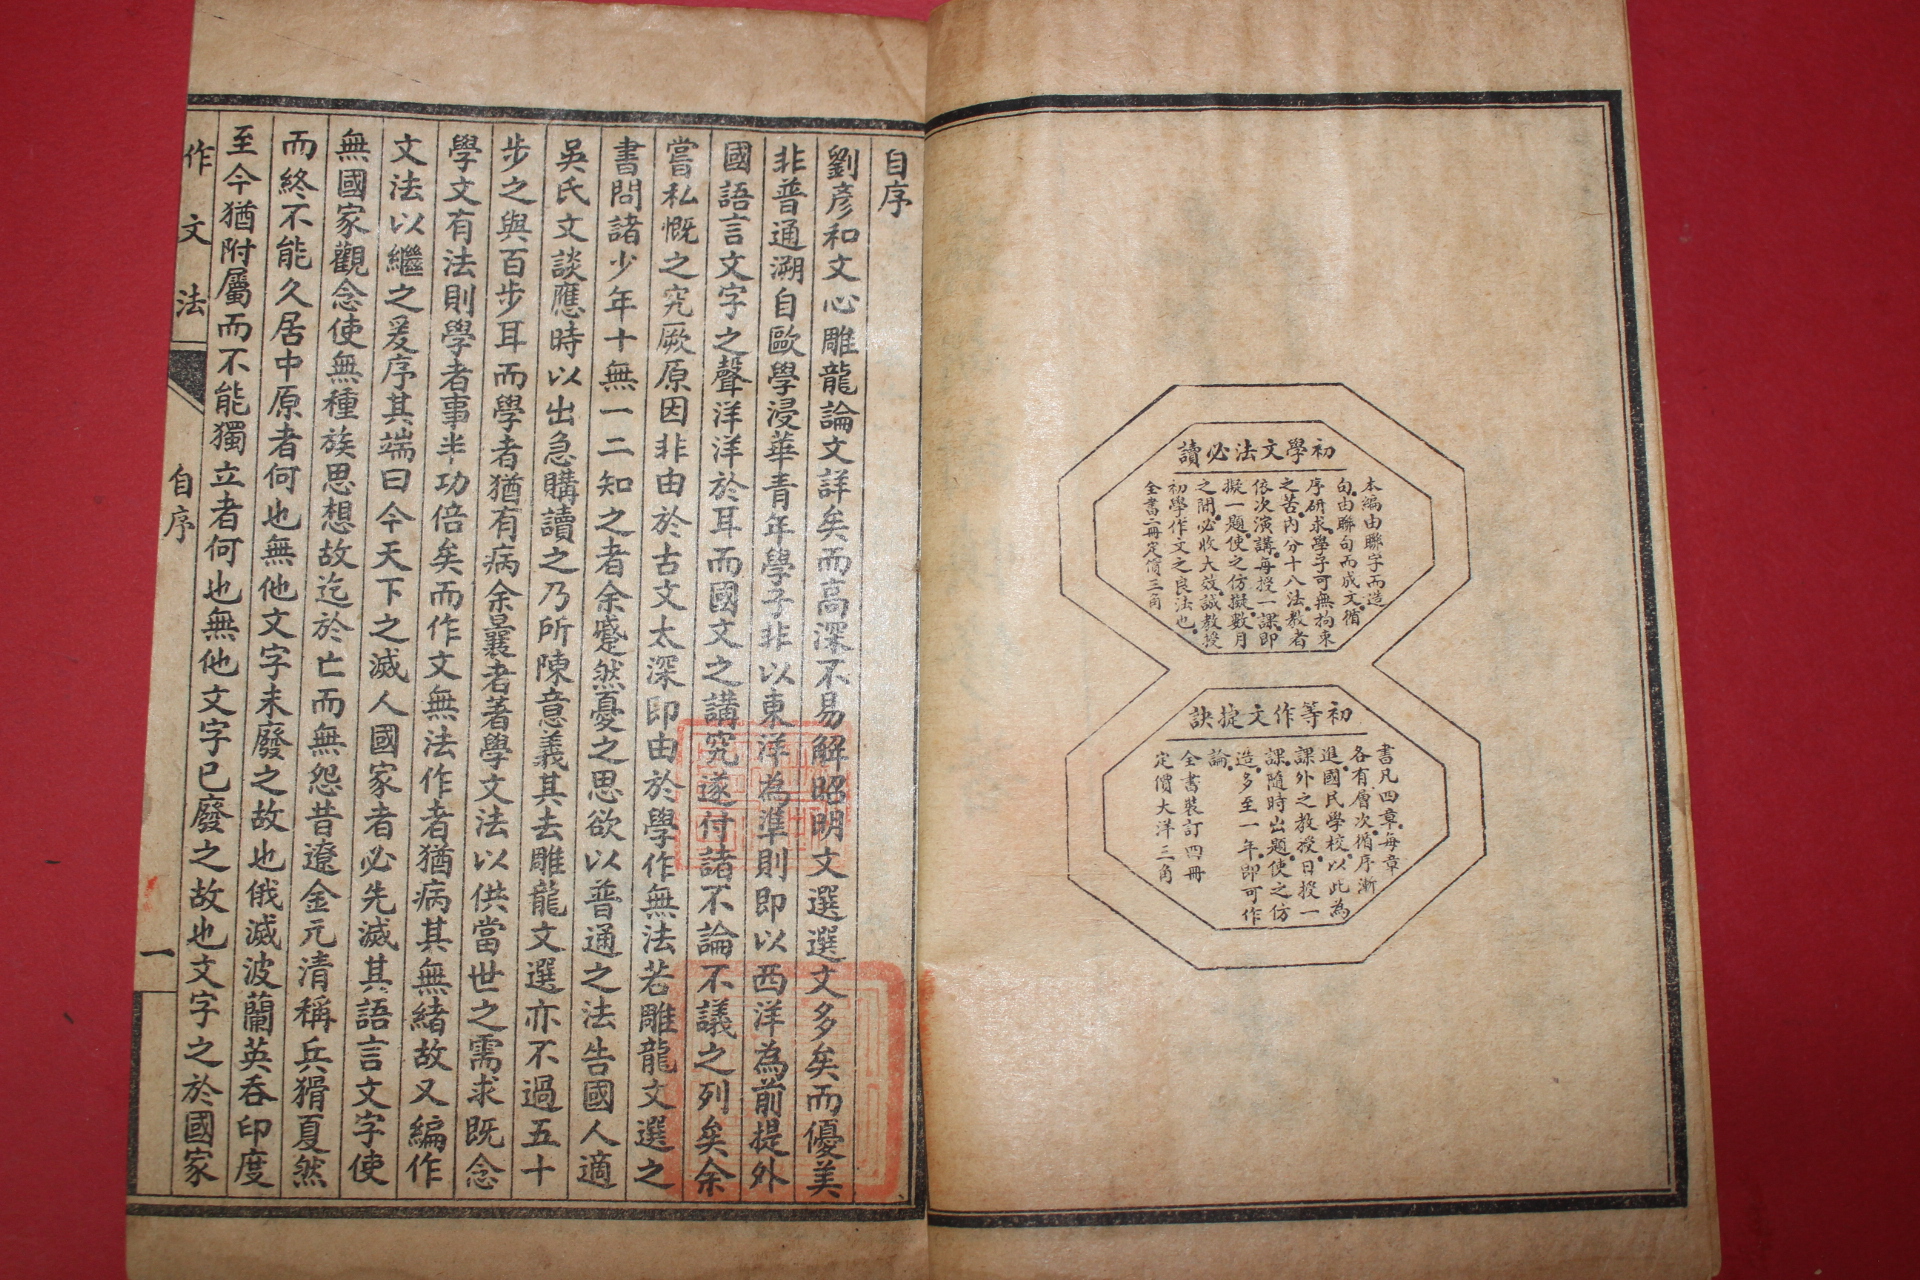 初學文法必讀
本編由聯字而造
句由聯句而成文循
序研求學子可無拘束
之苦內分十八法教者
依次演講每授一課即
擬一題使之仿擬數月
之間必收大效誠教授
初學作文之良法也
全書二冊定價三角
初等作文捷訣
書凡四章每章
各有層次循序漸
進國民學校以此為
課外之教授日授一
課隨時出題使之仿
造多至一年即可作
論
全書裝訂四冊
定價大洋三角
自序
劉彥和文心雕龍論文詳矣而高深不易解昭明文選選文多矣而優美
非普通溯自歐學浸華青年學子非以東洋為準則即以西洋為前提外
國語言文字之聲洋洋於耳而國文之講究遂付諸不論不議之列矣余
嘗私慨之究厥原因非由於古文太深即由於學作無法若雕龍文選之
書問諸少年十無一二知之者余蹙然憂之思欲以普通之法告國人適
吳氏文談應時以出急購讀之乃所陳意義其去雕龍文選亦不過五十
步之與百步耳而學者猶有病余曩者著學文法以供當世之需求既念
學文有法則學者事半功倍矣而作文無法作者猶病其無緒故又編作
文法以繼之爰序其端曰今天下之滅人國家者必先滅其語言文字使
無國家觀念使無種族思想故迄於亡而無怨昔遼金元清稱兵猾夏然
而終不能久居中原者何也無他文字未廢之故也俄滅波蘭英吞印度
至今猶附屬而不能獨立者何也無他文字已廢之故也文字之於國家
作文法
自序
一